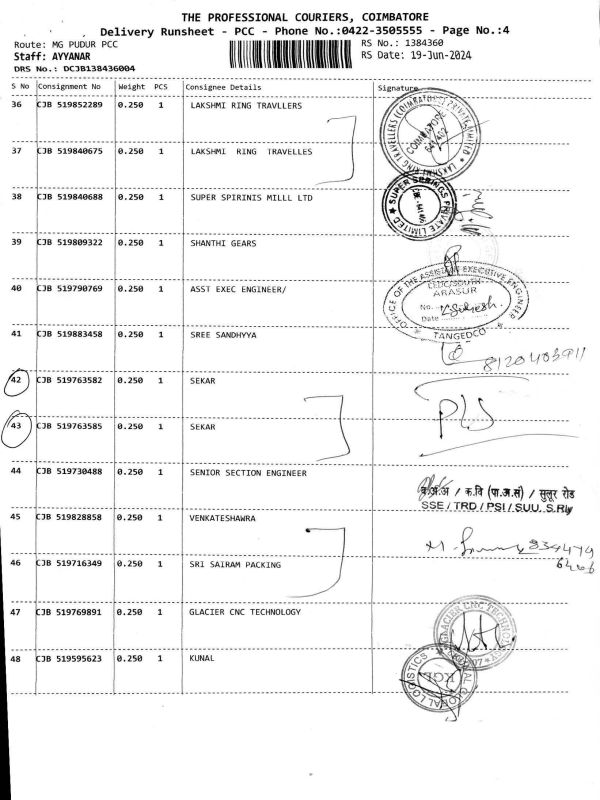 THE PROFESSIONAL COURIERS, COIMBATORE
Delivery Runsheet - PCC - Phone No.:0422-3505555 - Page No.:4
Route: MG PUDUR PCC
RS No.: 1384360
Staff: AYYANAR
RS Date: 19-Jun-2024
DRS No.: DCJB138436004
S No Consignment No Weight PCS Consignee Details Signature
36 CJB 519852289 0.250 1 LAKSHMI RING TRAVLLERS
LAKSHMI RING TRAVELLERS (COIMBATORE) PRIVATE LIMITED
COIMBATORE
641402
37 CJB 519840675 0.250 1 LAKSHMI RING TRAVELLES
38 CJB 519840688 0.250 1 SUPER SPIRINIS MILLL LTD
SUPER SPRINGS PRIVATE LIMITED
39 CJB 519809322 0.250 1 SHANTHI GEARS
40 CJB 519790769 0.250 1 ASST EXEC ENGINEER/
OFFICE OF THE ASSISTANT EXECUTIVE ENGINEER
ARASUR
No.
Date
TANGEDCO
41 CJB 519883458 0.250 1 SREE SANDHYYA
8120403911
42 CJB 519763582 0.250 1 SEKAR
43 CJB 519763585 0.250 1 SEKAR
44 CJB 519730488 0.250 1 SENIOR SECTION ENGINEER
/ क.वि (पा.अ.सं) / सुलूर रोड
SSE / TRD / PSI / SUU, S.Rly
45 CJB 519828858 0.250 1 VENKATESHAWRA
46 CJB 519716349 0.250 1 SRI SAIRAM PACKING
47 CJB 519769891 0.250 1 GLACIER CNC TECHNOLOGY
GLACIER CNC TECHNOLOGY
48 CJB 519595623 0.250 1 KUNAL
GLOBAL LOGISTICS
KGL